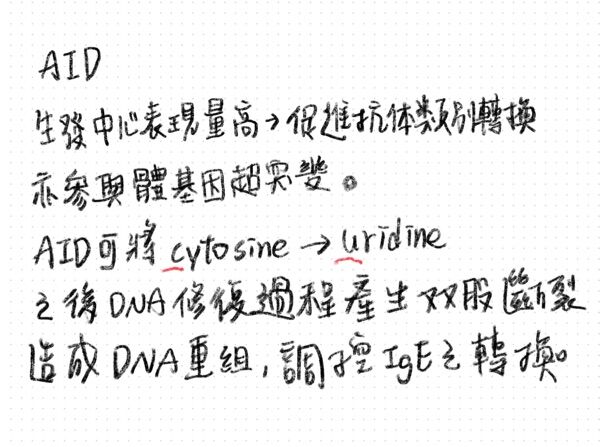 AID
生發中心表現量高→促進抗体類別轉換
亦參與體基因超突變。
AID可將 cytosine → uridine
之後DNA修復過程產生双股斷裂
造成DNA重組,調控IgE之轉換。